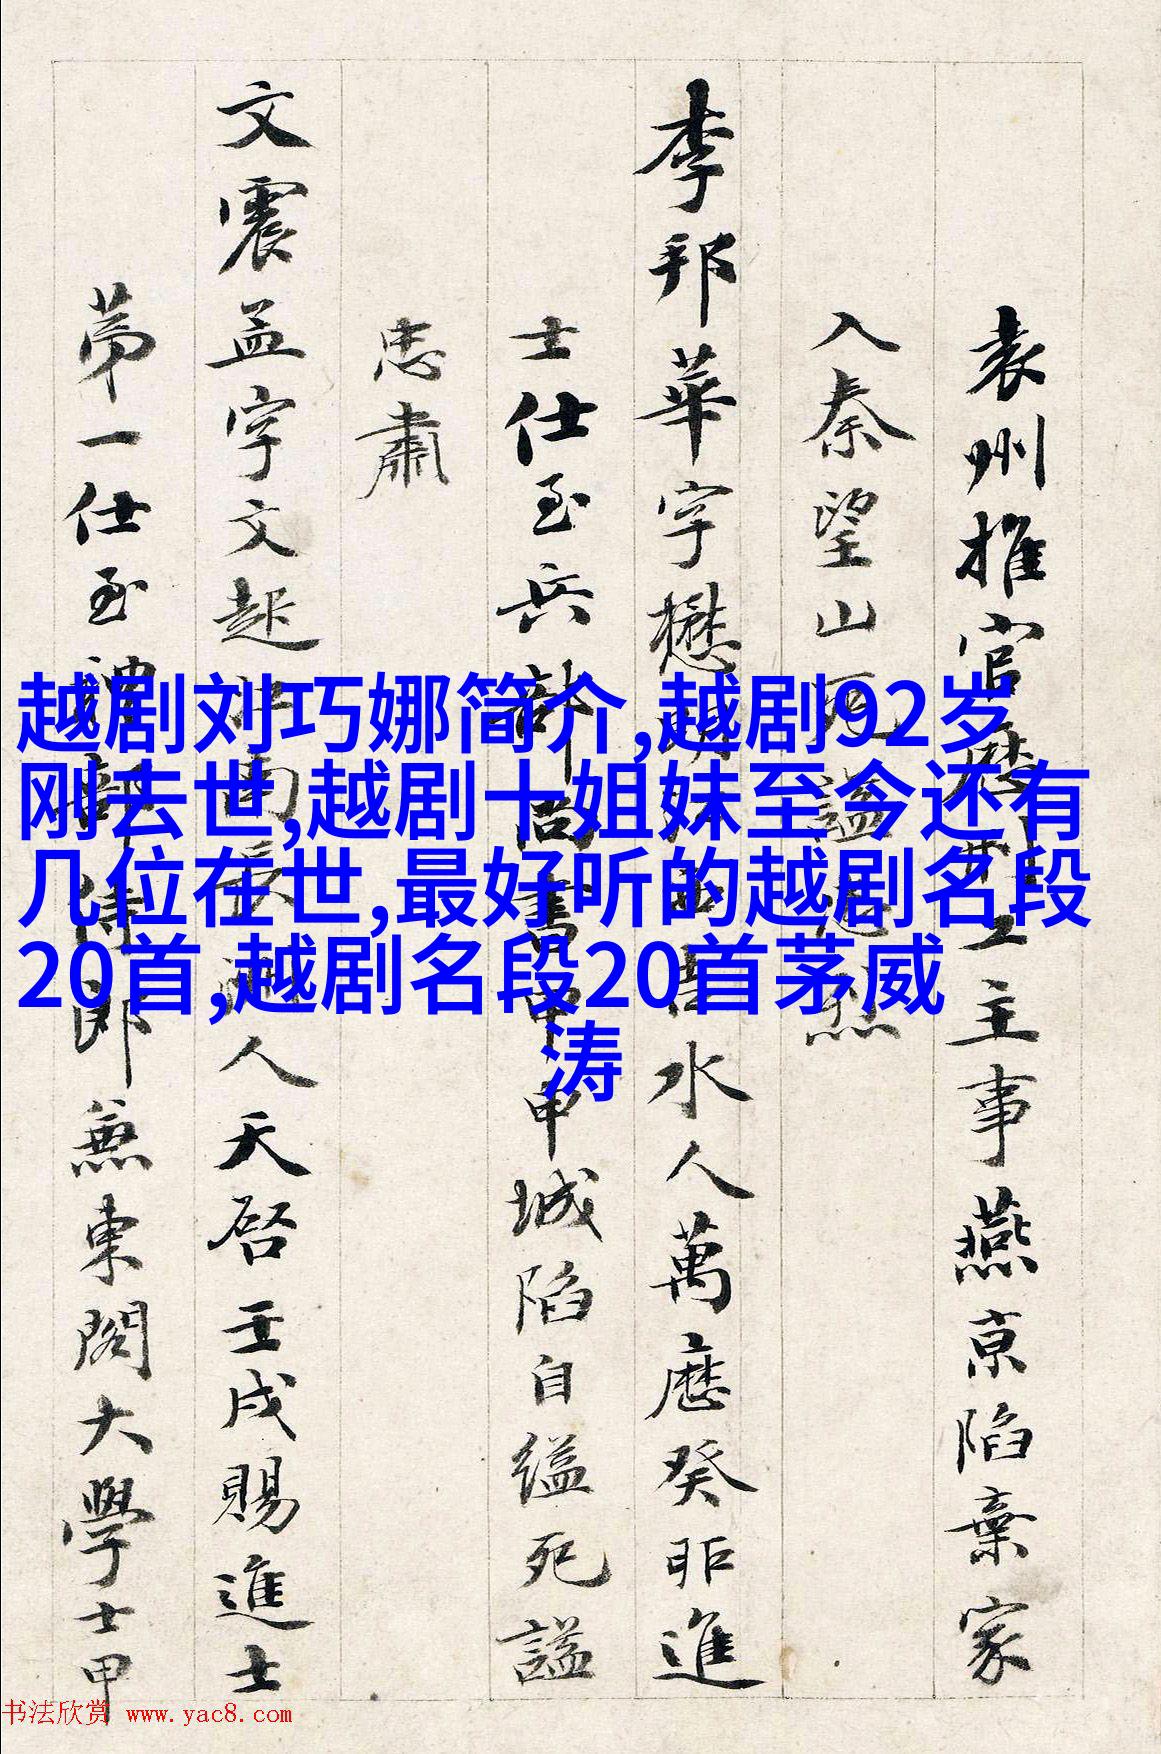 越剧刘巧娜简介,越剧92岁
刚去世,越剧十姐妹至今还有
几位在世,最好听的越剧名段
20首,越剧名段20首茅威
涛
袁州推官歷工主事燕京陷棄家
入秦望山死謚烈
李邦華字懋明吉水人萬曆癸卯進
士仕至兵部尚書甲申城陷自縊死謚
忠肅
文震孟字文起人天啓壬戌賜進士
第一仕至禮部侍郎兼東閣大學士甲
书法欣赏 www.yac8.com